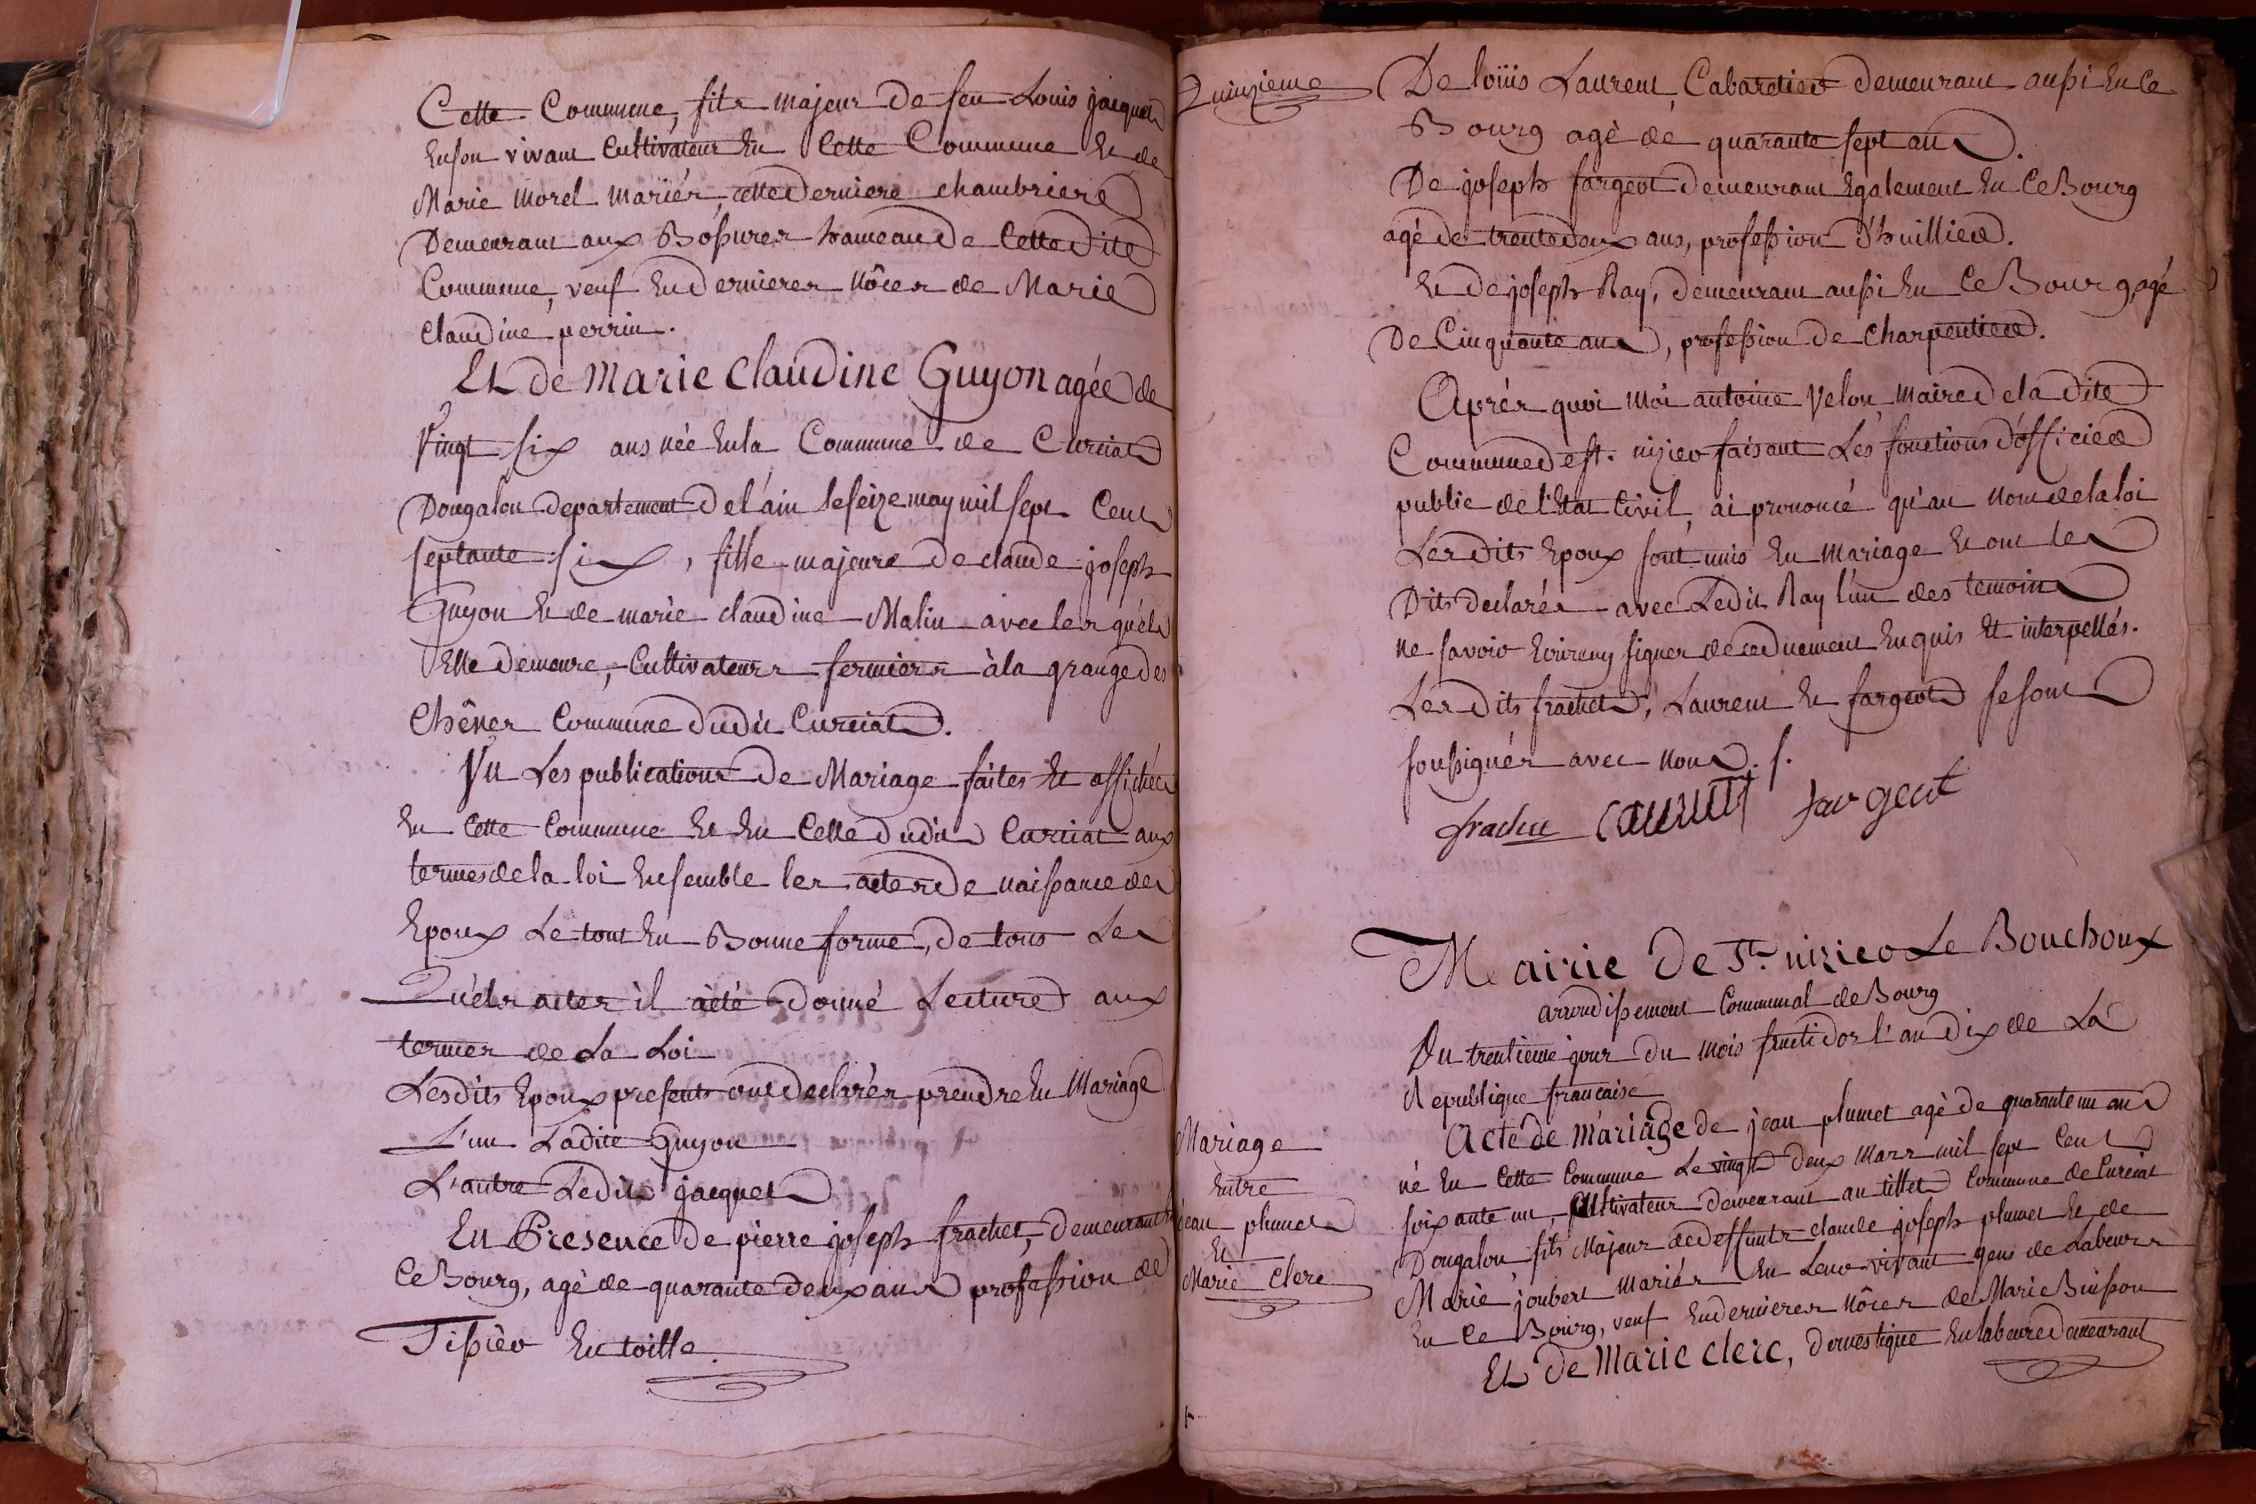 Cette Commune, fils majeur de feu Louis jacquet
En son vivant Cultivateur En Cette Commune Et de
Marie Morel Mariés, cette derniere chambriere
Demeurant aux Bossures hameau de Cette dite
Commune, veuf En dernieres Nôces de Marie
Claudine perrin.
Et de Marie Claudine Guyon agée de
Vingt six ans née En la Commune de Curciat
Dongalon departement de l'ain le seize may mil sept Cent
septante six, fille majeure de claude joseph
Guyon Et de marie claudine Malin avec les quéls
Elle demeure, Cultivateurs fermiers à la grange des
Chênes Commune dudit Curciat.
Vu Les publications de Mariage faites Et affichées
En Cette Commune Et En Celle dudit Curciat aux
termes de la loi Ensemble les actes de naissance des
Epoux Le tout En Bonne forme, de tous Les
Quéls actes il à été donné Lecture aux
termes de La Loi
Lesdits Epoux presents ont declarés prendre En Mariage
L'un Ladite Guyon
L'autre Ledit jacquet
En Presence de pierre joseph frachet, demeurant En
Ce Bourg, agé de quarante deux ans profession de
Tissier En toille.
Quinzieme
De loüis Laurent, Cabaretier demeurant aussi En Ce
Bourg agé de quarante sept ans.
De joseph fargeot demeurant Egalement En Ce Bourg
agé de trente deux ans, profession d'huillier.
Et de joseph Ray, demeurant aussi En Ce Bourg, agé
De Cinquante ans, profession de Charpentier.
Aprés quoi Moi antoine Velon Maire de la dite
Commune de st. nizier faisant Les fonctions d'officier
public de l'Etat Civil, ai prononcé qu'au Nom de la loi
Lesdits Epoux sont unis En Mariage Et ont les
Dits declarés avec Ledit Ray l'un des temoins
ne savoir Ecrire ny signer de ce duement Enquis Et interpellés.
Lesdits frachet, Laurent Et fargeot se sont
soussignés avec Nous.
frachet Laurent fargeot
Mairie de St. nizier Le Bouchoux
arrondissement Communal de Bourg
Du trentieme jour du mois fructidor l'an dix de La
Republique francaise
Mariage
Entre
jean plumet
Et
Marie Clerc
Acte de mariage de jean plumet agé de quarante un ans
né En Cette Commune Le vingt deux Mars mil sept Cent
soixante un, Cultivateur demeurant au tillet Commune de Curciat
Dongalon fils Majeur de deffunts claude joseph plumet Et de
Marie joubert Mariés En Leur vivant gens de Labeurs
En Ce Bourg, veuf En dernieres Nôces de Marie Buisson
Et de Marie Clerc, domestique En labeure demeurant